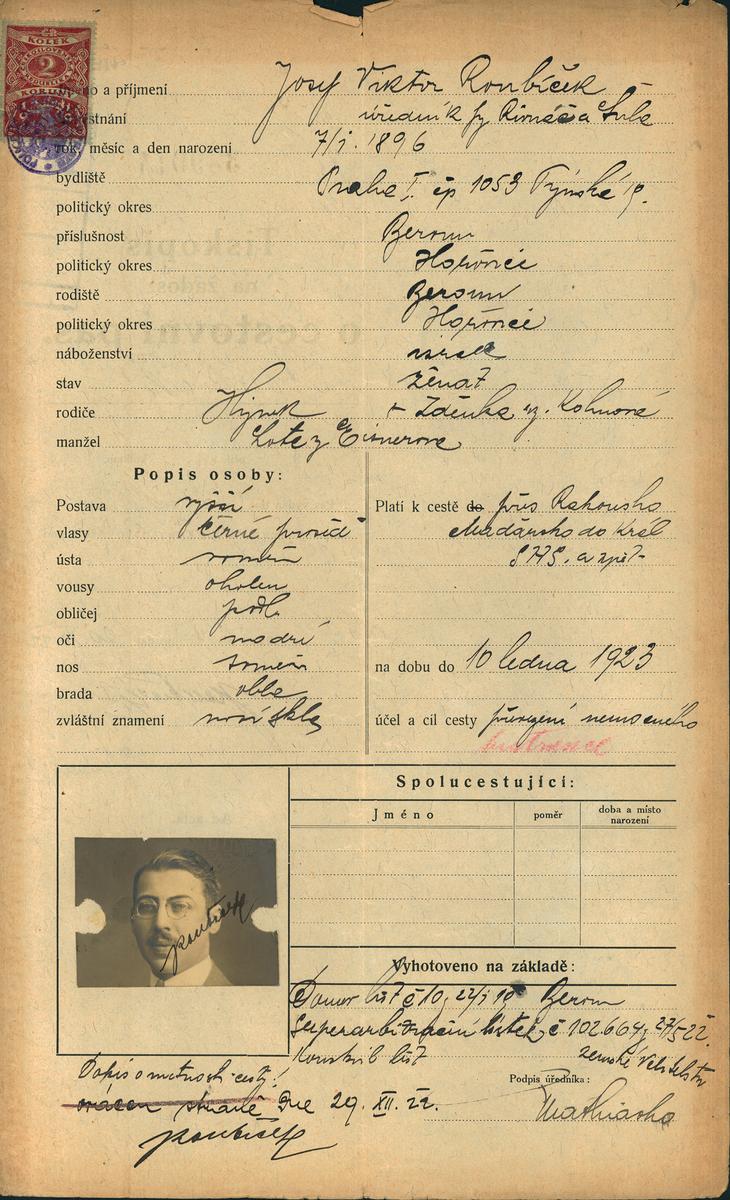 KOLEK
2
KORUNY
jméno a příjmení Josef Viktor Roubíček
zaměstnání úředník fy
rok, měsíc a den narození 7/I. 1896
bydliště Praha I. čp 1053 Týnská
politický okres
příslušnost Beroun
politický okres Hořovice
rodiště Beroun
politický okres Hořovice
náboženství israel
stav ženat
rodiče Hynek + Zdeňka Kohnové
manžel Lote z Eisnerové
Popis osoby:
Postava vyšší
vlasy černé
ústa
vousy oholen
obličej podl.
oči modré
nos
brada oblá
zvláštní znamení nosí skla
Platí k cestě do přes Rakousko
Maďarsko do Král
SHS. a zpět
na dobu do 10 ledna 1923
účel a cíl cesty nemocného
Spolucestující:
Jméno poměr doba a místo narození
roubíček
Vyhotoveno na základě:
Domov list č 10 Beroun
Superarbitrační lístek č 102664
list zemské velitelství
Dopis o nutnosti cesty!
vrácen straně Dne 29. XII. 22.
roubíček
Podpis úředníka: